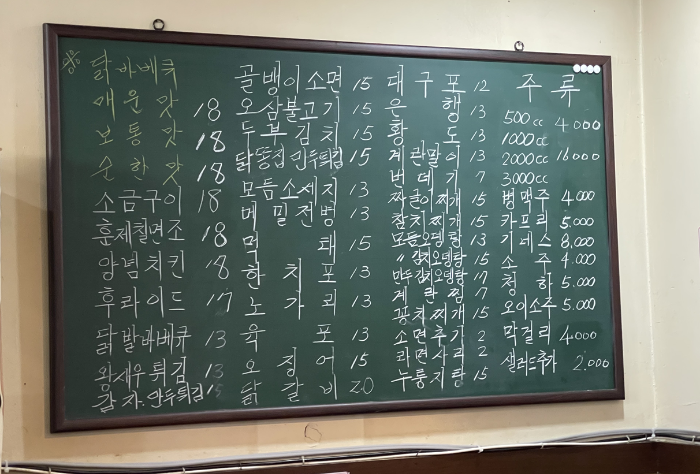 ※ 닭바베큐
매운맛 18
보통맛 18
순한맛 18
소금구이 18
훈제칠면조 18
양념치킨 18
후라이드 17
닭발바베큐 13
왕새우튀김 13
감자.만두튀김 15
골뱅이소면 15
오삼불고기 15
두부김치 15
닭똥집만두튀김 15
모듬소세지 13
메밀전병 13
먹태 15
한치포 13
노가리 13
육포 13
오징어 15
닭갈비 20
대구포 12
은행 13
황도 13
계란말이 13
번데기 7
짜글이찌개 15
참치찌개 15
모듬오뎅탕 13
〃 김치오뎅탕 15
만두김치오뎅탕 17
계란찜 7
꽁치찌개 15
소면추가 2
라면사리 2
누룽지탕 15
주류
500cc 4000
1000cc
2000cc 16000
3000cc
병맥주 4.000
카프리 5.000
기네스 8.000
소주 4.000
청하 5.000
오이소주 5.000
막걸리 4000
샐러드추가 2.000